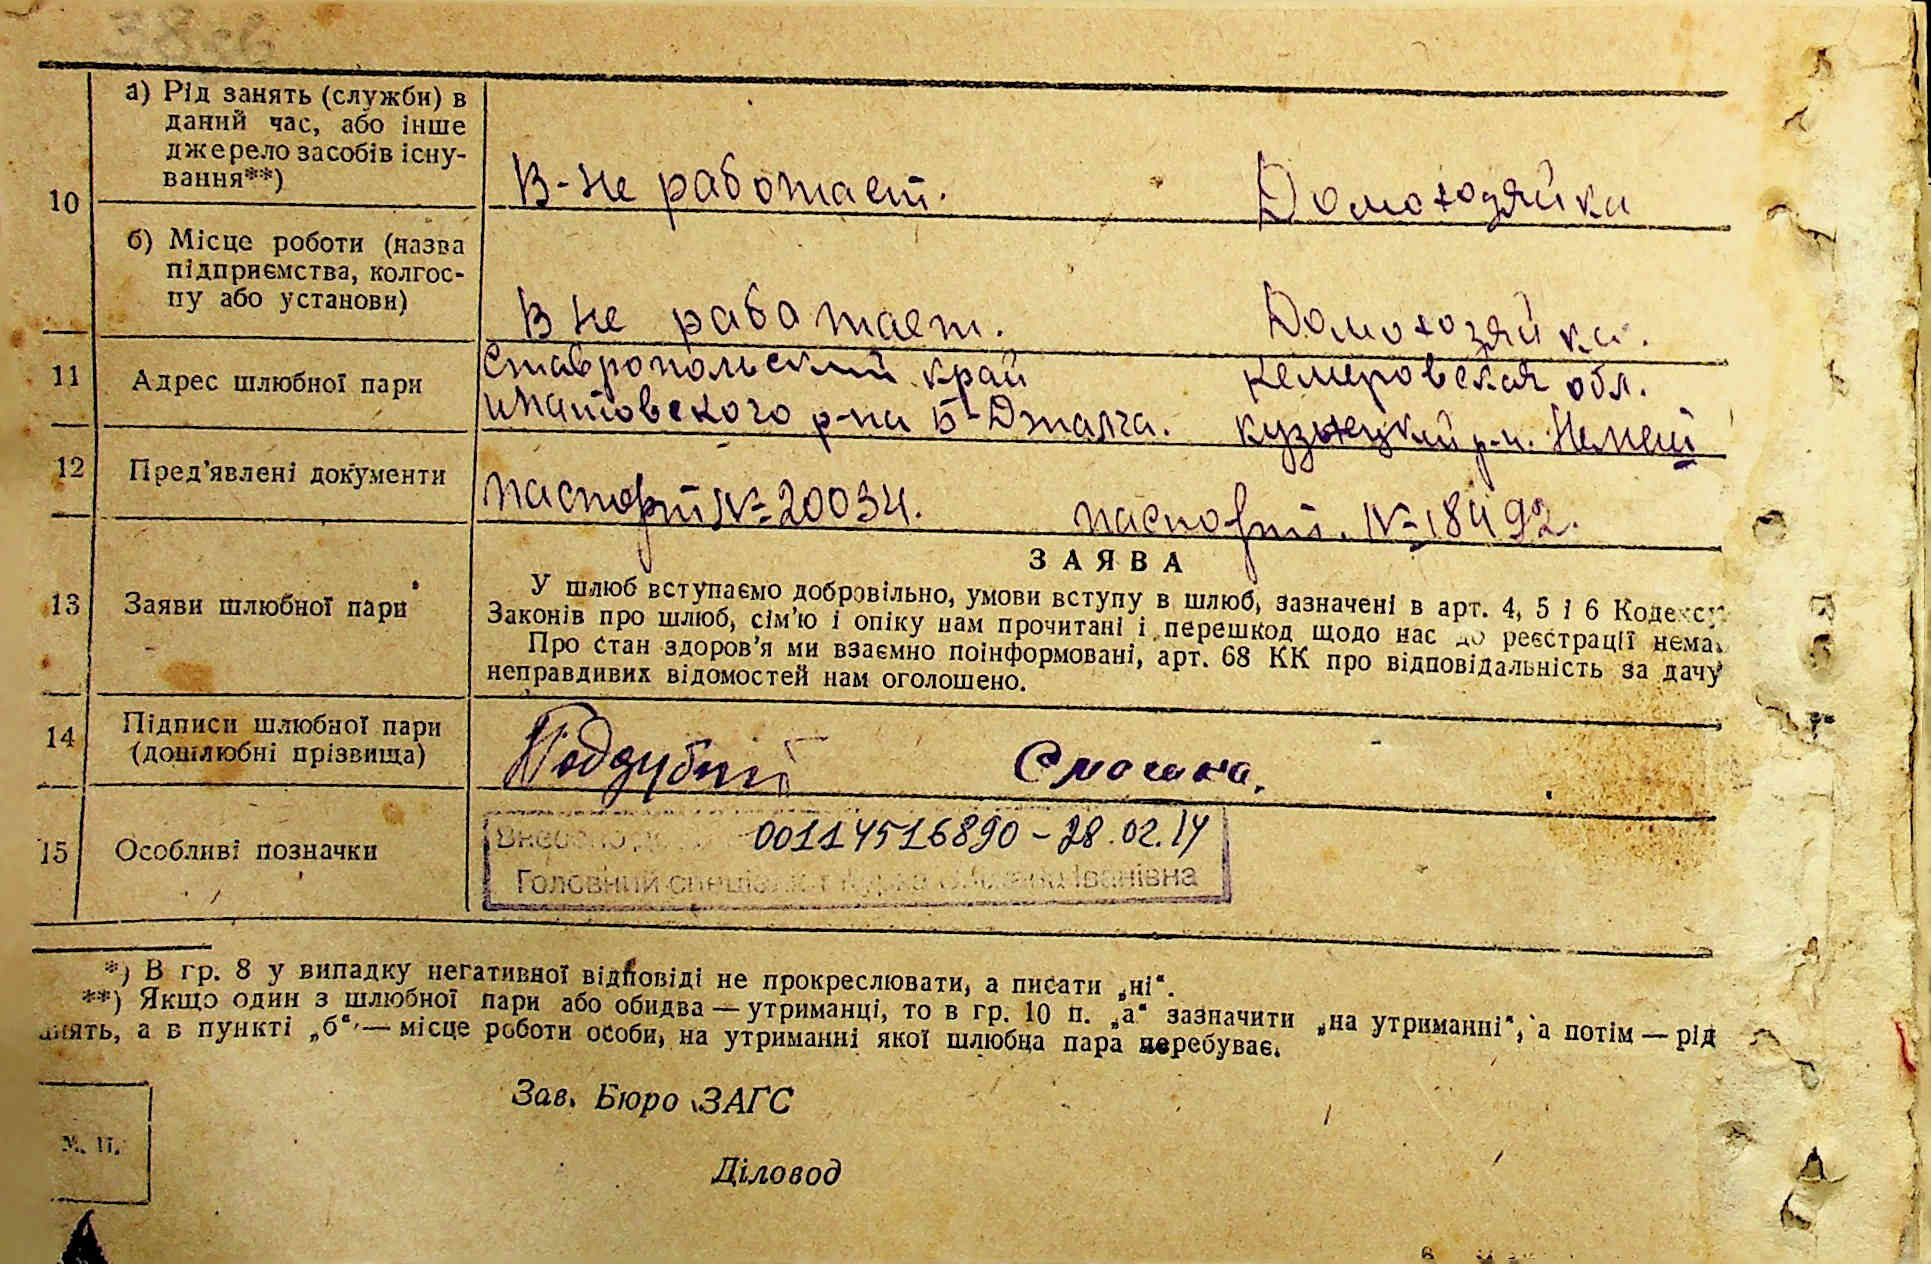 10
а) Рід занять (служби) в
даний час, або інше
джерело засобів існу-
вання**)
В-не работает. Домохозяйка
б) Місце роботи (назва
підприємства, колгос-
пу або установи)
В не работает. Домохозяйка.
11 Адрес шлюбної пари
Ставропольский край Кемеровская обл.
р-на Б-Джалга. Кузнецкий р-н.
12 Пред'явлені документи
паспорт № 20034. паспорт. № 18492.
13 Заяви шлюбної пари
ЗАЯВА
У шлюб вступаємо добровільно, умови вступу в шлюб, зазначені в арт. 4, 5 і 6 Кодексу
Законів про шлюб, сім'ю і опіку нам прочитані і перешкод щодо нас до реєстрації нема.
Про стан здоров'я ми взаємно поінформовані, арт. 68 КК про відповідальність за дачу
неправдивих відомостей нам оголошено.
14 Підписи шлюбної пари
(дошлюбні прізвища)
Поддубний
15 Особливі позначки
Внесено до 00114516890 – 28.02.14
Головний спеціаліст Іванівна
*) В гр. 8 у випадку негативної відповіді не прокреслювати, а писати „ні“.
**) Якщо один з шлюбної пари або обидва — утриманці, то в гр. 10 п. „а“ зазначити „на утриманні“, а потім — рід
анять, а в пункті „б“ — місце роботи особи, на утриманні якої шлюбна пара перебуває.
Зав. Бюро ЗАГС
М. П.
Діловод